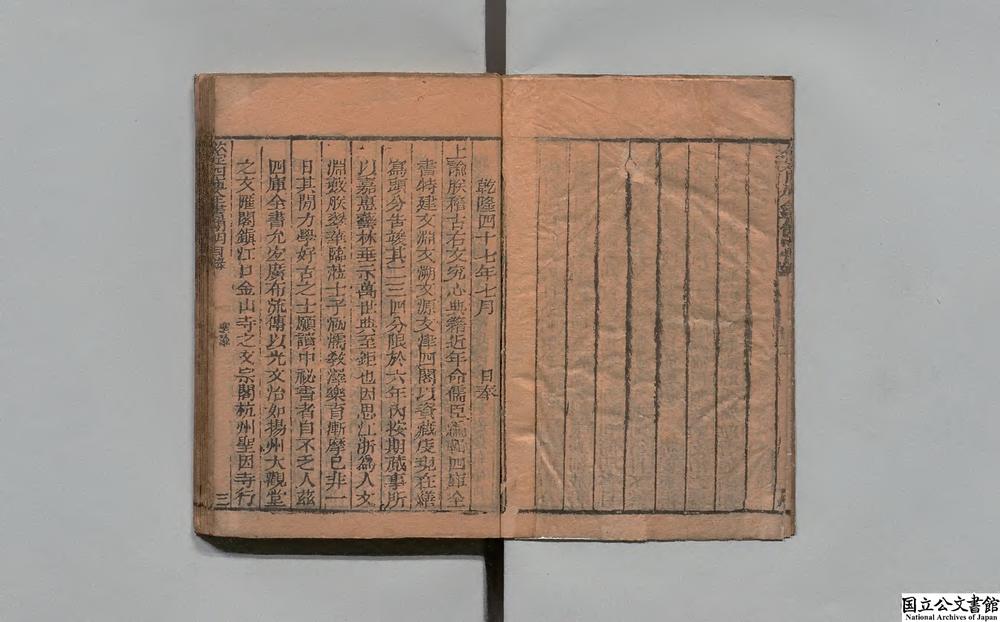 乾隆四十七年七月 日奉
上諭朕稽古右文究心典籍近年命儒臣編輯四庫全
書特建文淵文溯文源文津四閣以資藏庋現在繕
寫頭分告竣其二三四分限於六年內按期蕆事所
以嘉惠藝林垂示萬世典至鉅也因思江浙爲人文
淵藪朕翠華臨蒞士子涵濡敎澤樂育漸摩已非一
日其閒力學好古之士願讀中祕書者自不乏人茲
四庫全書允宜廣布流傳以光文治如揚州大觀堂
之文匯閣鎭江口金山寺之文宗閣杭州聖因寺行
三
国立公文書館
National Archives of Japan